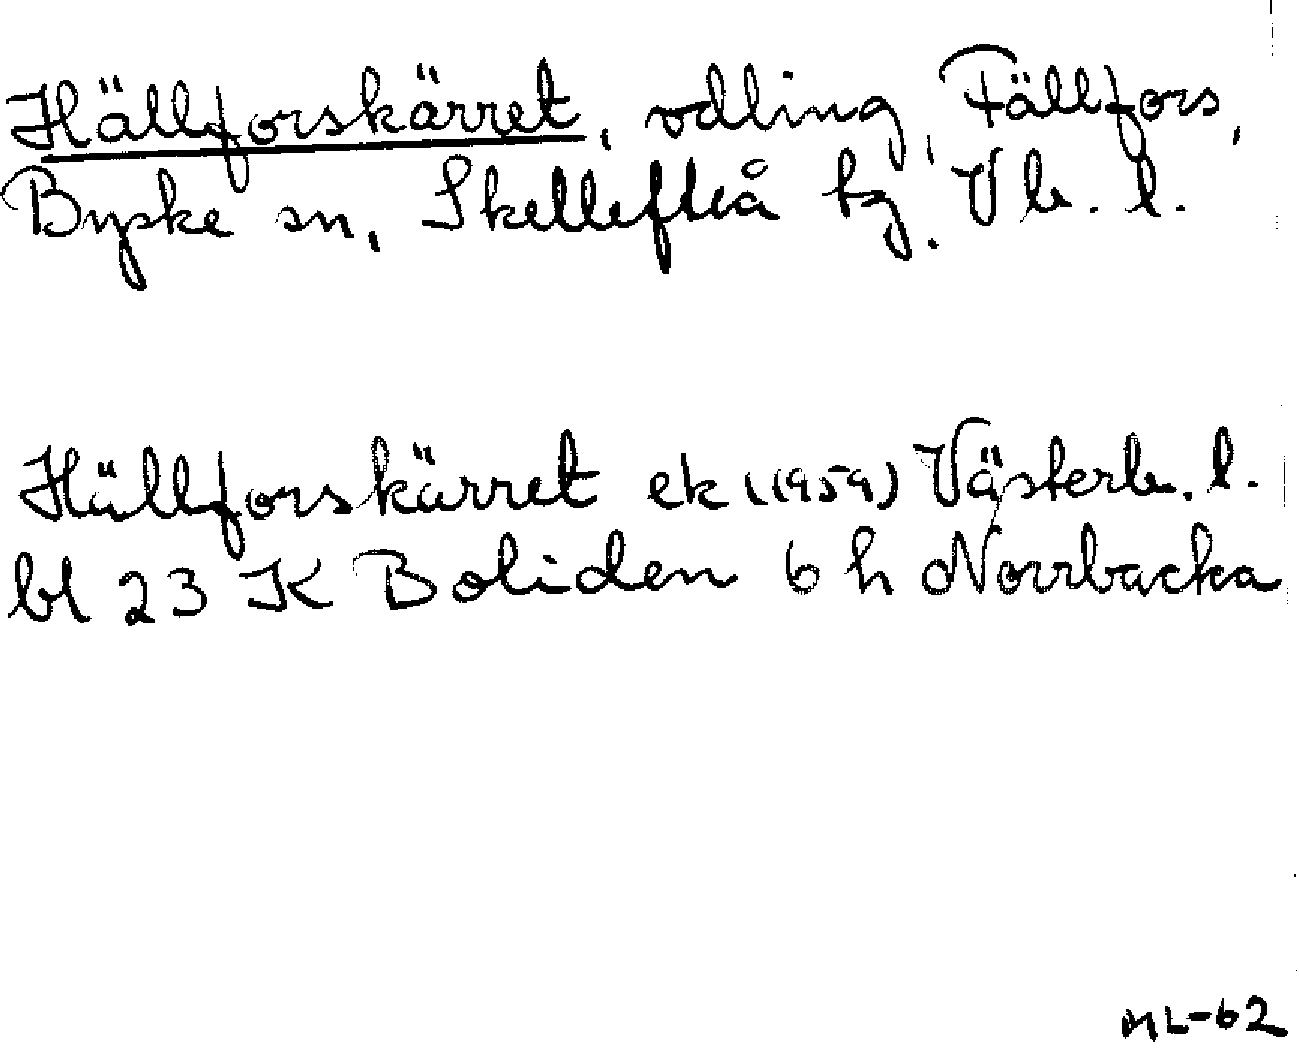 Hällforskärret, odling, Fällfors,
Byske sn, Skellefteå tg, Vb. l.
Hällforskärret ek (1959) Västerb. l.
bl 23 K Boliden 6 h Norrbacka
ML-62